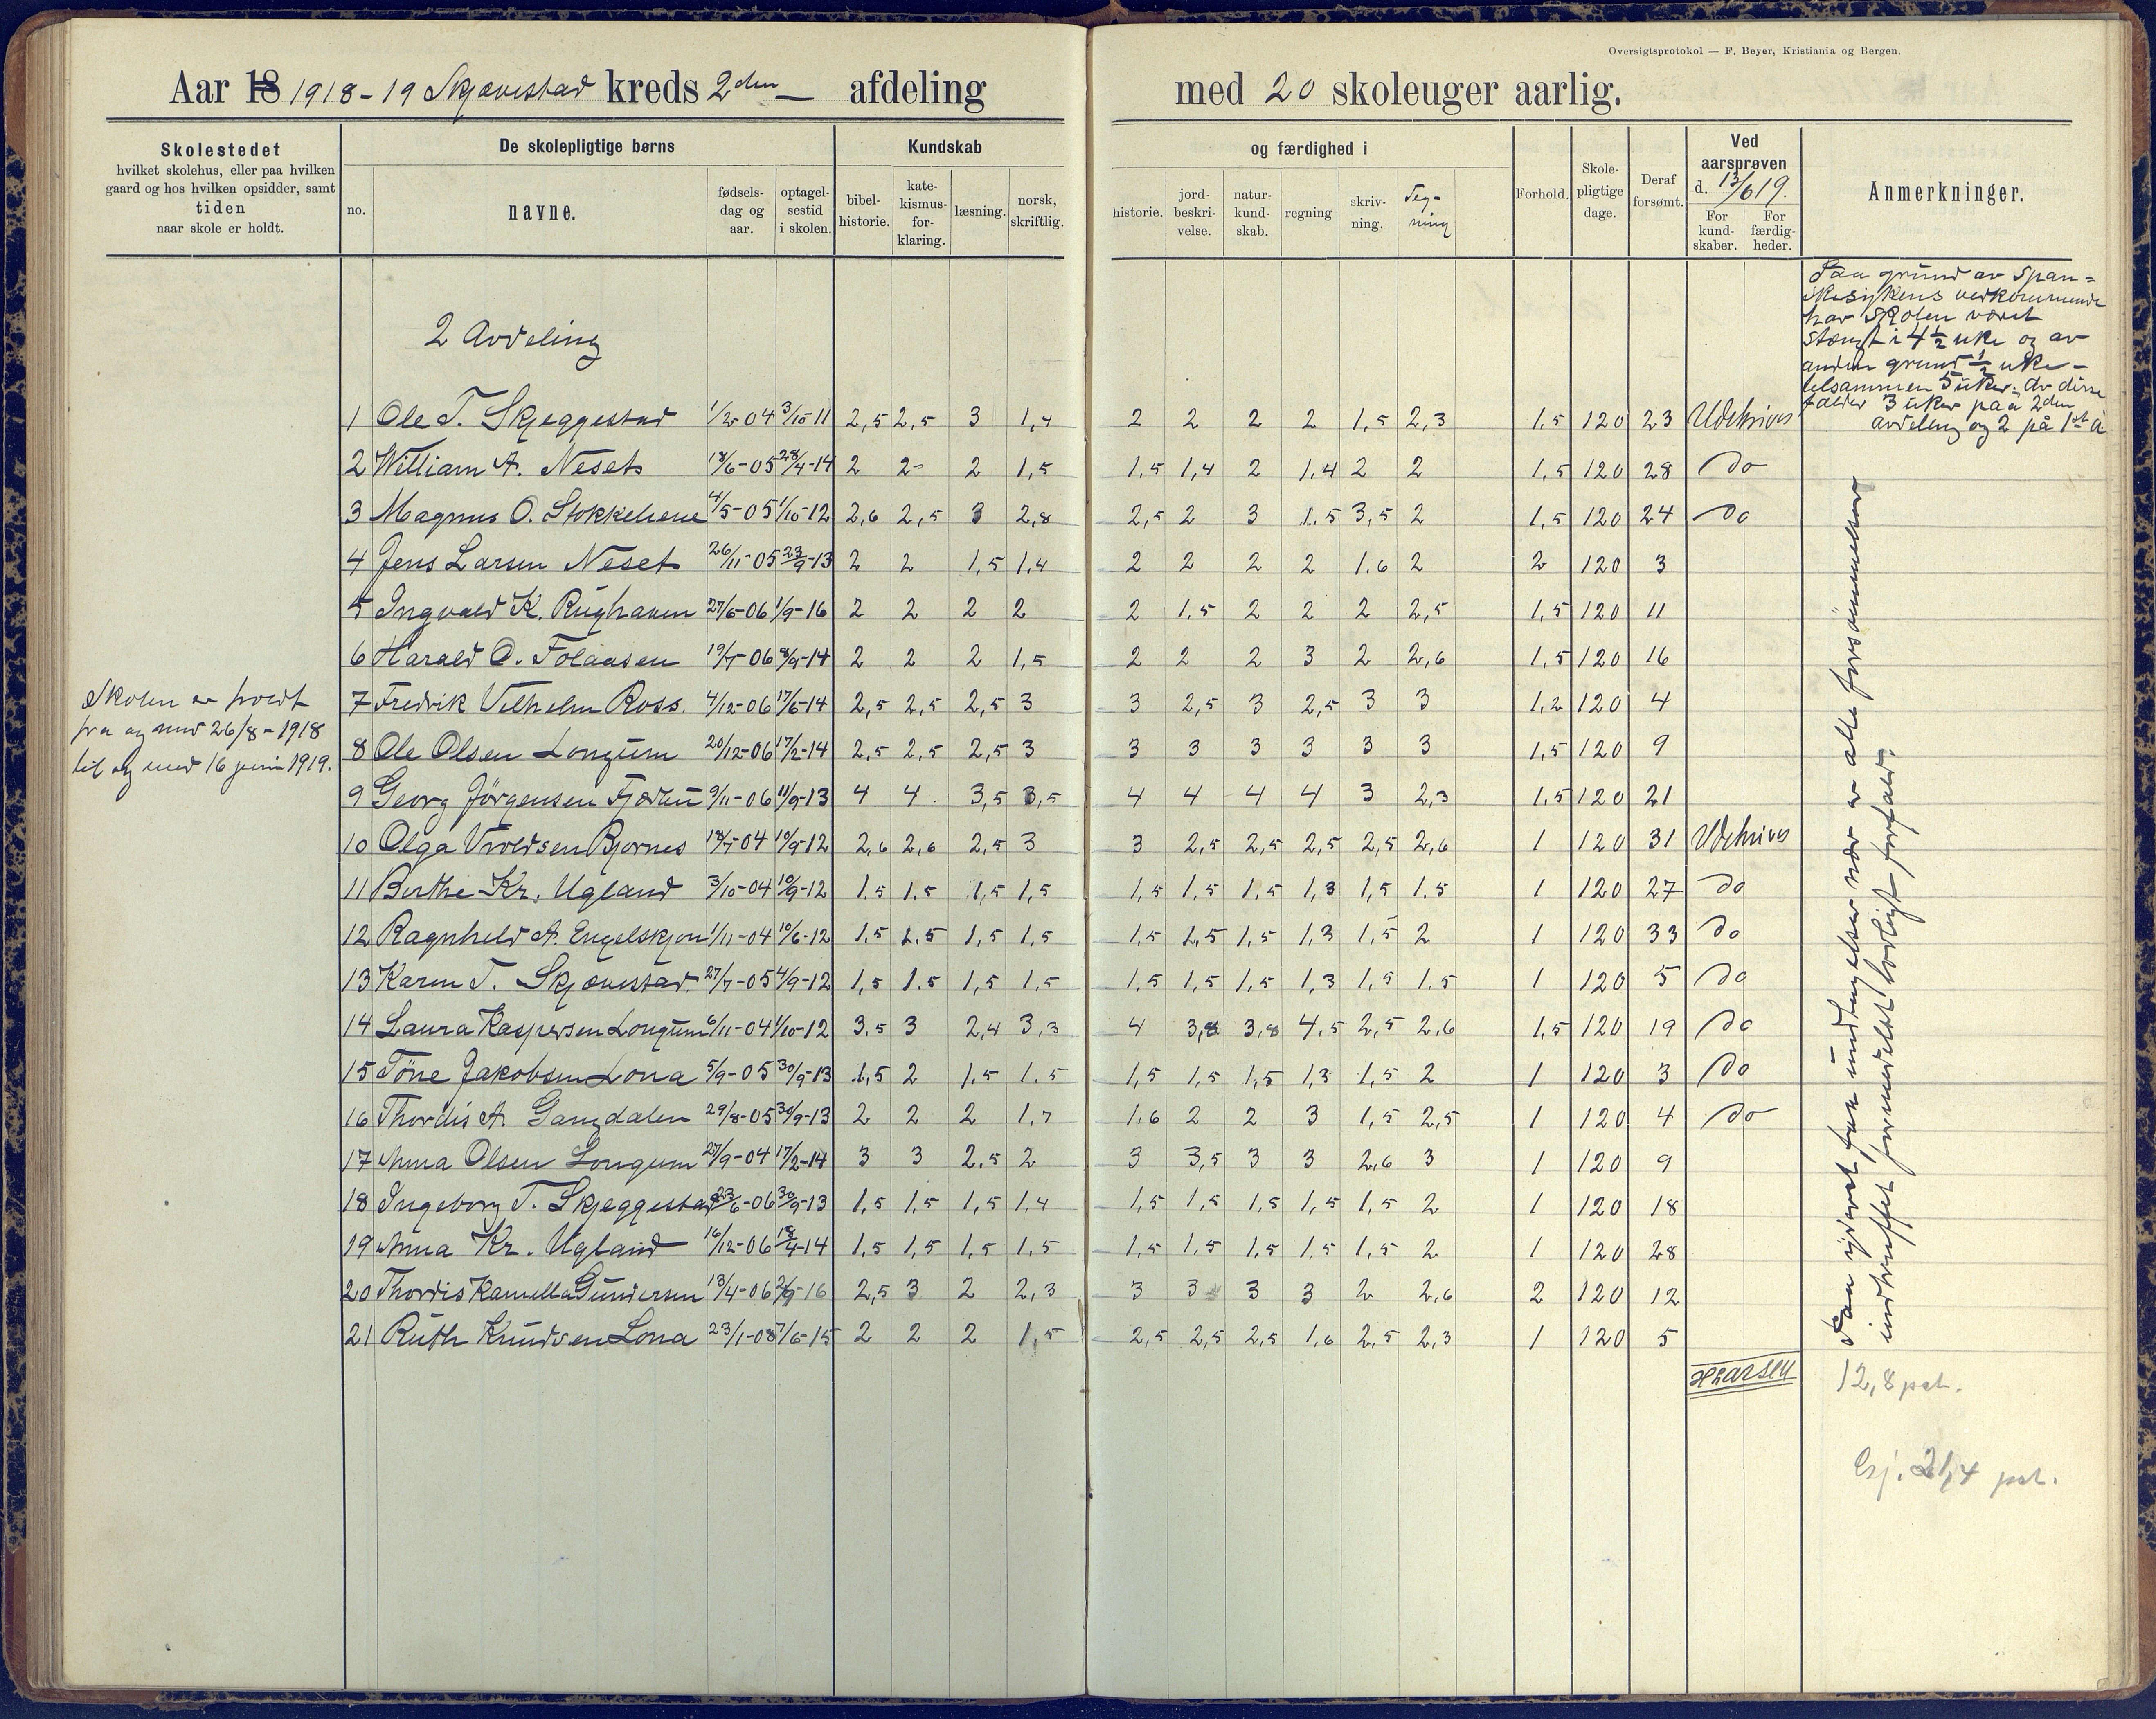 Oversigtsprotokol — F. Beyer, Kristiania og Bergen.
Aar 18 1918-19 Skjævestad kreds 2den afdeling med 20 skoleuger aarlig.
Skolestedet
hvilket skolehus, eller paa hvilken
gaard og hos hvilken opsidder, samt
tiden
naar skole er holdt.
De skolepligtige børns
no.
navne.
fødsels-
dag og
aar.
optagel-
sestid
i skolen.
Kundskab
bibel-
historie.
kate-
kismus-
for-
klaring.
læsning.
norsk,
skriftlig.
og færdighed i
historie.
jord-
beskri-
velse.
natur-
kund-
skab.
regning
skriv-
ning.
Teg-
ning
Forhold.
Skole-
pligtige
dage.
Deraf
forsømt.
Ved
aarsprøven
d. 13/6 19.
For
kund-
skaber.
For
færdig-
heder.
Anmerkninger.
Paa grund av Span-
skesykens vedkommende
har skolen været
stængt i 4 1/2 uke og av
anden grund 1/2 uke -
tilsammen 5 uker. Av disse
falder 3 uker paa 2den
avdeling og 2 på 1ste a
2 Avdeling
1 Ole T. Skjeggestad 1/2-04 3/10-11 2,5 2,5 3 1,4 2 2 2 2 1,5 2,3 1,5 120 23 Udskrives
2 William A. Neset 18/6-05 28/4-14 2 2- 2 1,5 1.5 1,4 2 1.4 2 2 1,5 120 28 do
3 Magnus O. Stokkeliene 4/5-05 1/10-12 2,6 2,5 3 2,8 2,5 2 3 1.5 3,5 2 1,5 120 24 do
4 Jens Larsen Neset 26/11-05 23/9-13 2 2 1,5 1,4 2 2 2 2 1.6 2 2 120 3
5 Ingvald K. Rughaven 27/6-06 1/9-16 2 2 2 2 2 1,5 2 2 2 2,5 1,5 120 11
6 Harald O. Tolaasen 19/7-06 8/9-14 2 2 2 1,5 2 2 2 3 2 2,6 1,5 120 16
7 Fredrik Vilhelm Ross. 4/12-06 17/6-14 2,5 2,5 2,5 3 3 2,5 3 2,5 3 3 1,2 120 4
8 Ole Olsen Longum 20/12-06 17/2-14 2,5 2,5 2,5 3 3 3 3 3 3 3 1,5 120 9
9 Georg Jörgensen 9/11-06 11/9-13 4 4 3,5 3,5 4 4 4 4 3 2,3 1,5 120 21
10 Olga Bjornes 18/7-04 10/9-12 2,6 2,6 2,5 3 3 2,5 2,5 2,5 2,5 2,6 1 120 31 Udskrives
11 Berthe Kr. Ugland 3/10-04 10/9-12 1.5 1.5 1,5 1,5 1,5 1,5 1,5 1,3 1,5 1.5 1 120 27 do
12 Ragnhild A. Engelskjøn 1/11-04 10/6-12 1.5 1.5 1,5 1,5 1,5 1,5 1,5 1,3 1,5 2 1 120 33 do
13 Karen T. Skjævestad 27/7-05 4/9-12 1,5 1.5 1,5 1.5 1,5 1,5 1,5 1,3 1,5 1.5 1 120 5 do
14 Laura Kaspersen Longum 6/11-04 1/10-12 3,5 3 2,4 3,3 4 3,8 3,8 4,5 2,5 2,6 1,5 120 19 do
15 Töne Jakobsen Lona 5/9-05 30/9-13 1,5 2 1.5 1.5 1,5 1,5 1,5 1,3 1,5 2 1 120 3 do
16 Thordis A. Gangdalen 29/8-05 30/9-13 2 2 2 1,7 1.6 2 2 3 1,5 2,5 1 120 4 do
17 Anna Olsen Longum 27/9-04 17/2-14 3 3 2.5 2 3 3,5 3 3 2,6 3 1 120 9
18 Ingeborg T. Skjeggestad 23/6-06 30/9-13 1,5 1,5 1,5 1,4 1,5 1,5 1,5 1,5 1,5 2 1 120 18
19 Anna Kr. Ugland 16/12-06 18/4-14 1,5 1,5 1,5 1,5 1,5 1,5 1,5 1,5 1,5 2 1 120 28
20 Thordis Kamella Gundersen 13/4-06 2/9-16 2,5 3 2 2,3 3 3 3 3 2 2,6 2 120 12
21 Ruth Knudsen Lona 23/1-08 7/6-15 2 2 2 1,5 2,5 2,5 2,5 1,6 2,5 2,3 1 120 5
Skolen er holdt
fra og med 26/8-1918
til og med 16 juni 1919.
Paa ganske faa undtagelser nær er alle forsömmelser
indtruffet formedelst lovligt forfald.
HLarsen
12,8 pct.
21,4 pct.